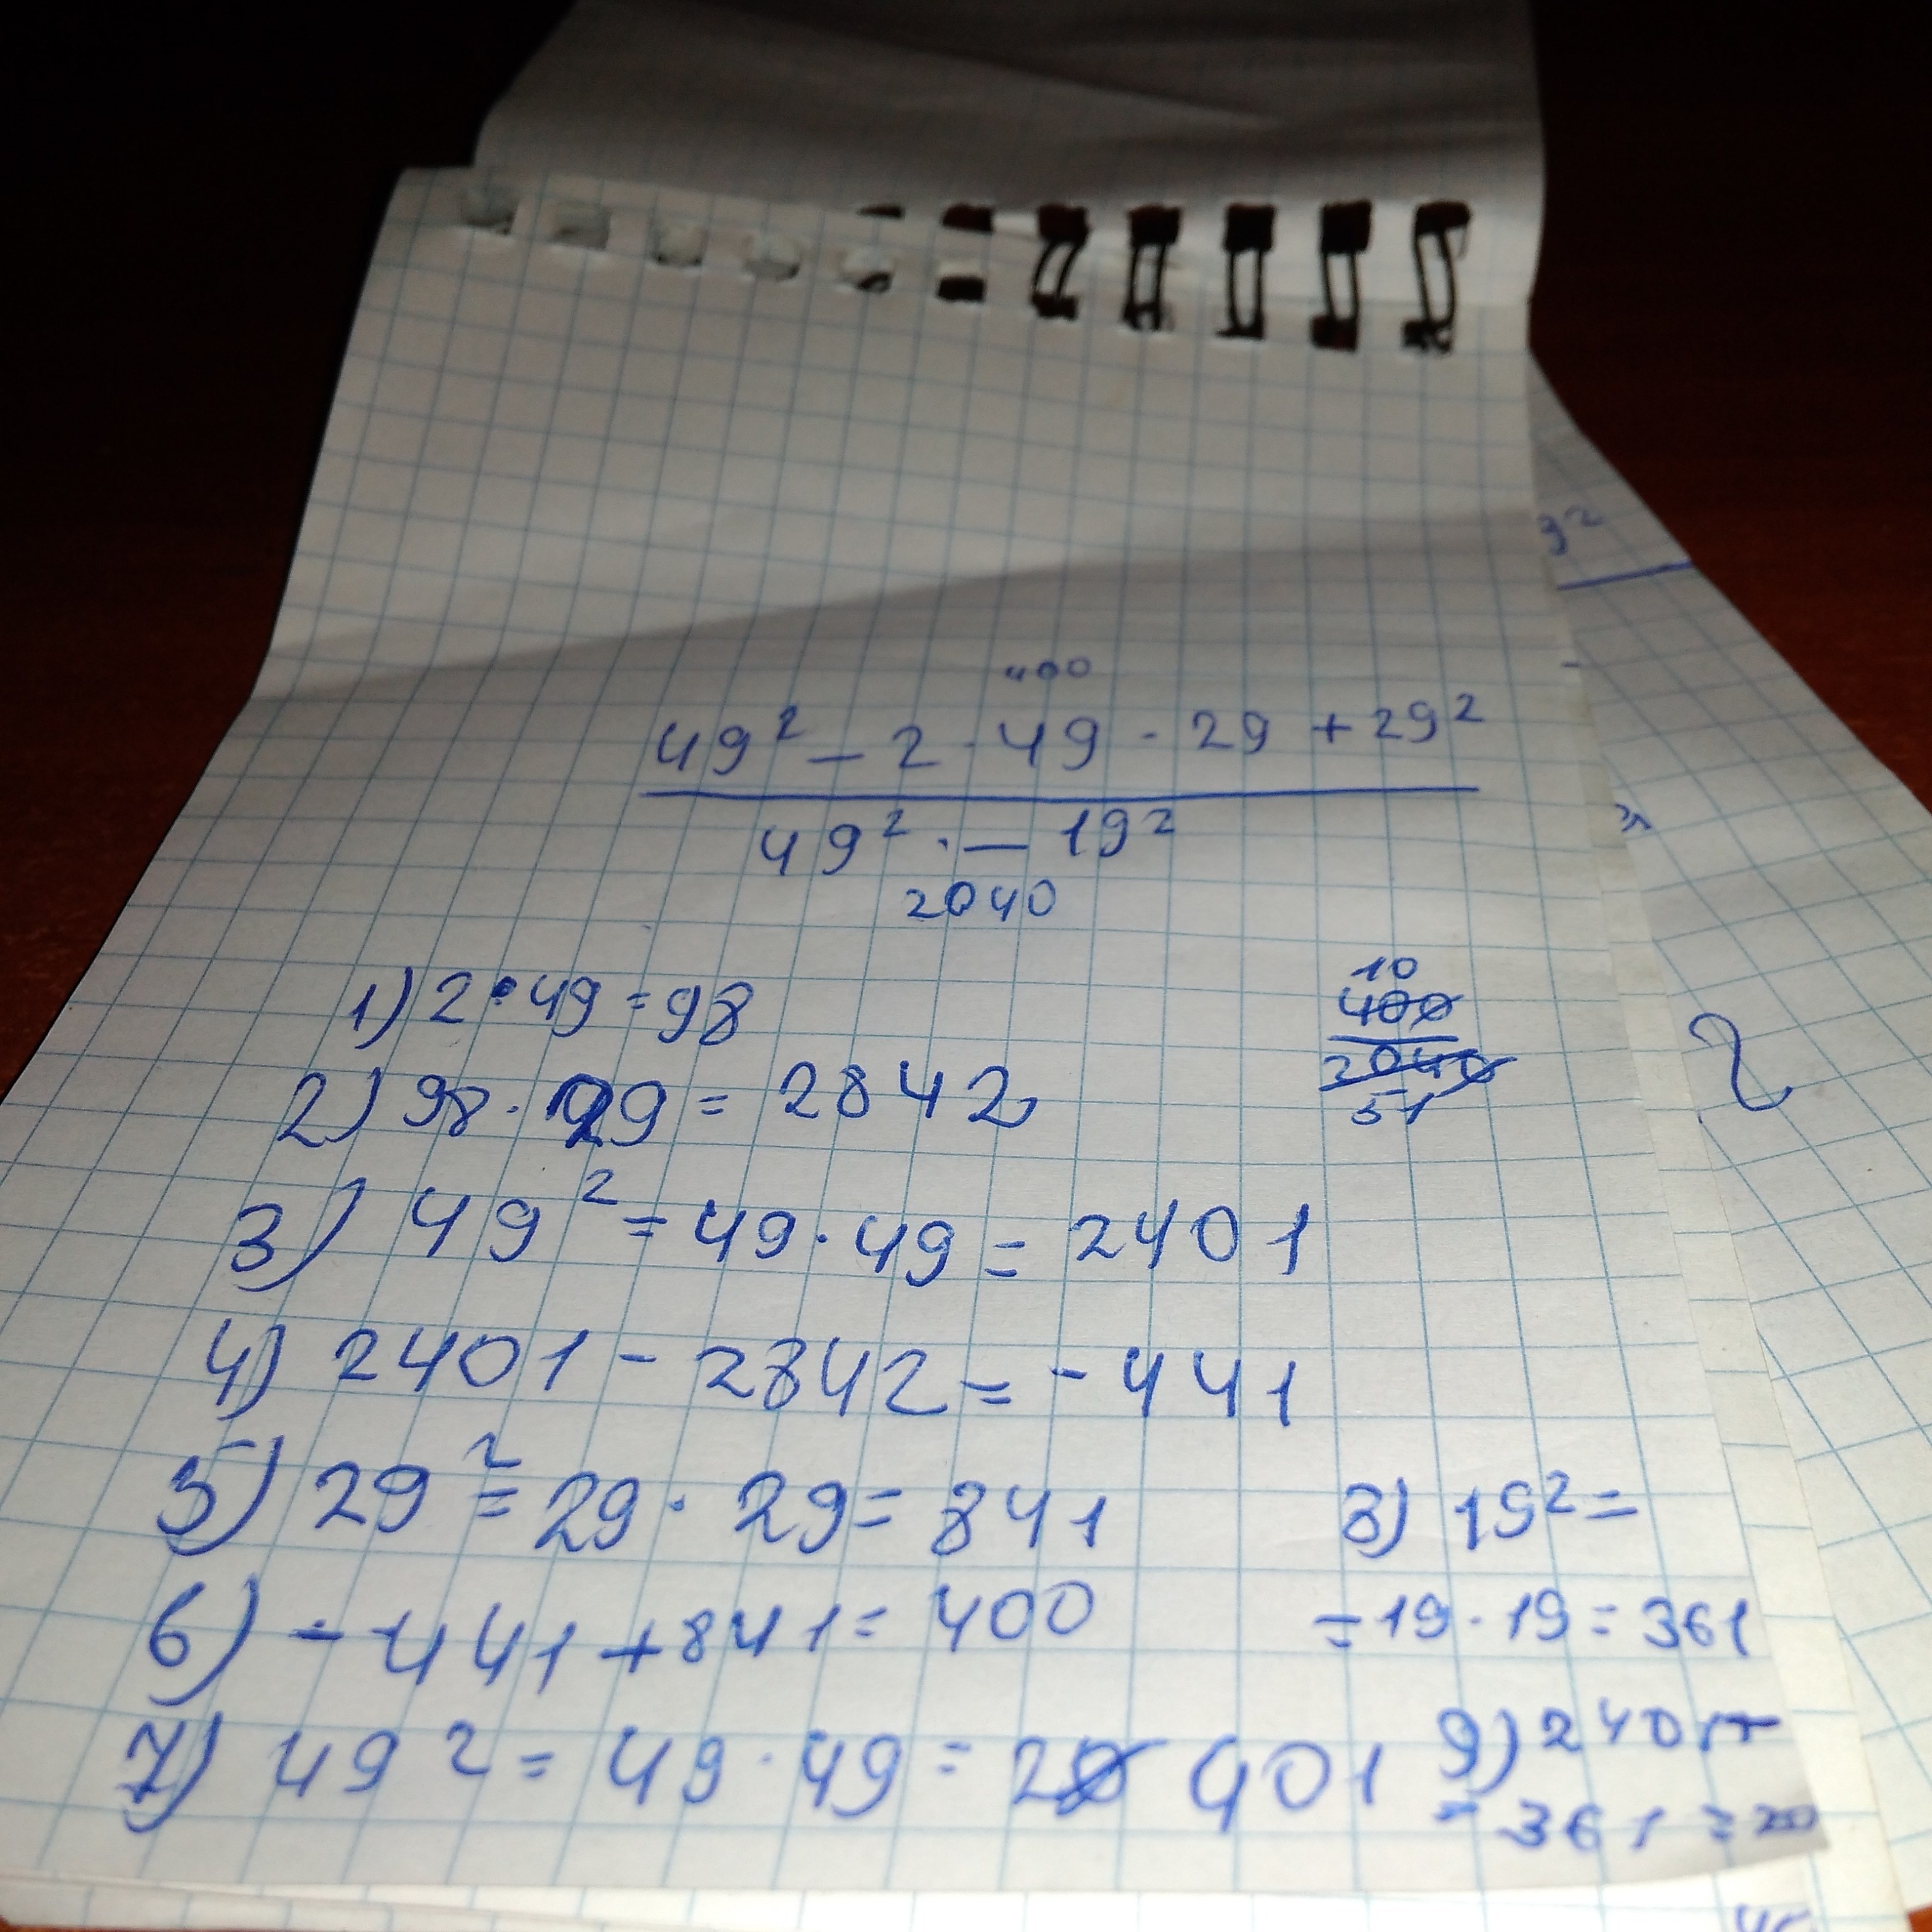 400
49² - 2 · 49 · 29 + 29²
49² · - 19²
2040
1) 2 · 49 = 98
10
400
2040
51
2) 98 · 29 = 2842
3) 49² = 49 · 49 = 2401
4) 2401 - 2842 = -441
5) 29² = 29 · 29 = 841
6) -441 + 841 = 400
7) 49² = 49 · 49 = 2 401
8) 19² =
= 19 · 19 = 361
9) 2401 -
- 361 = 20